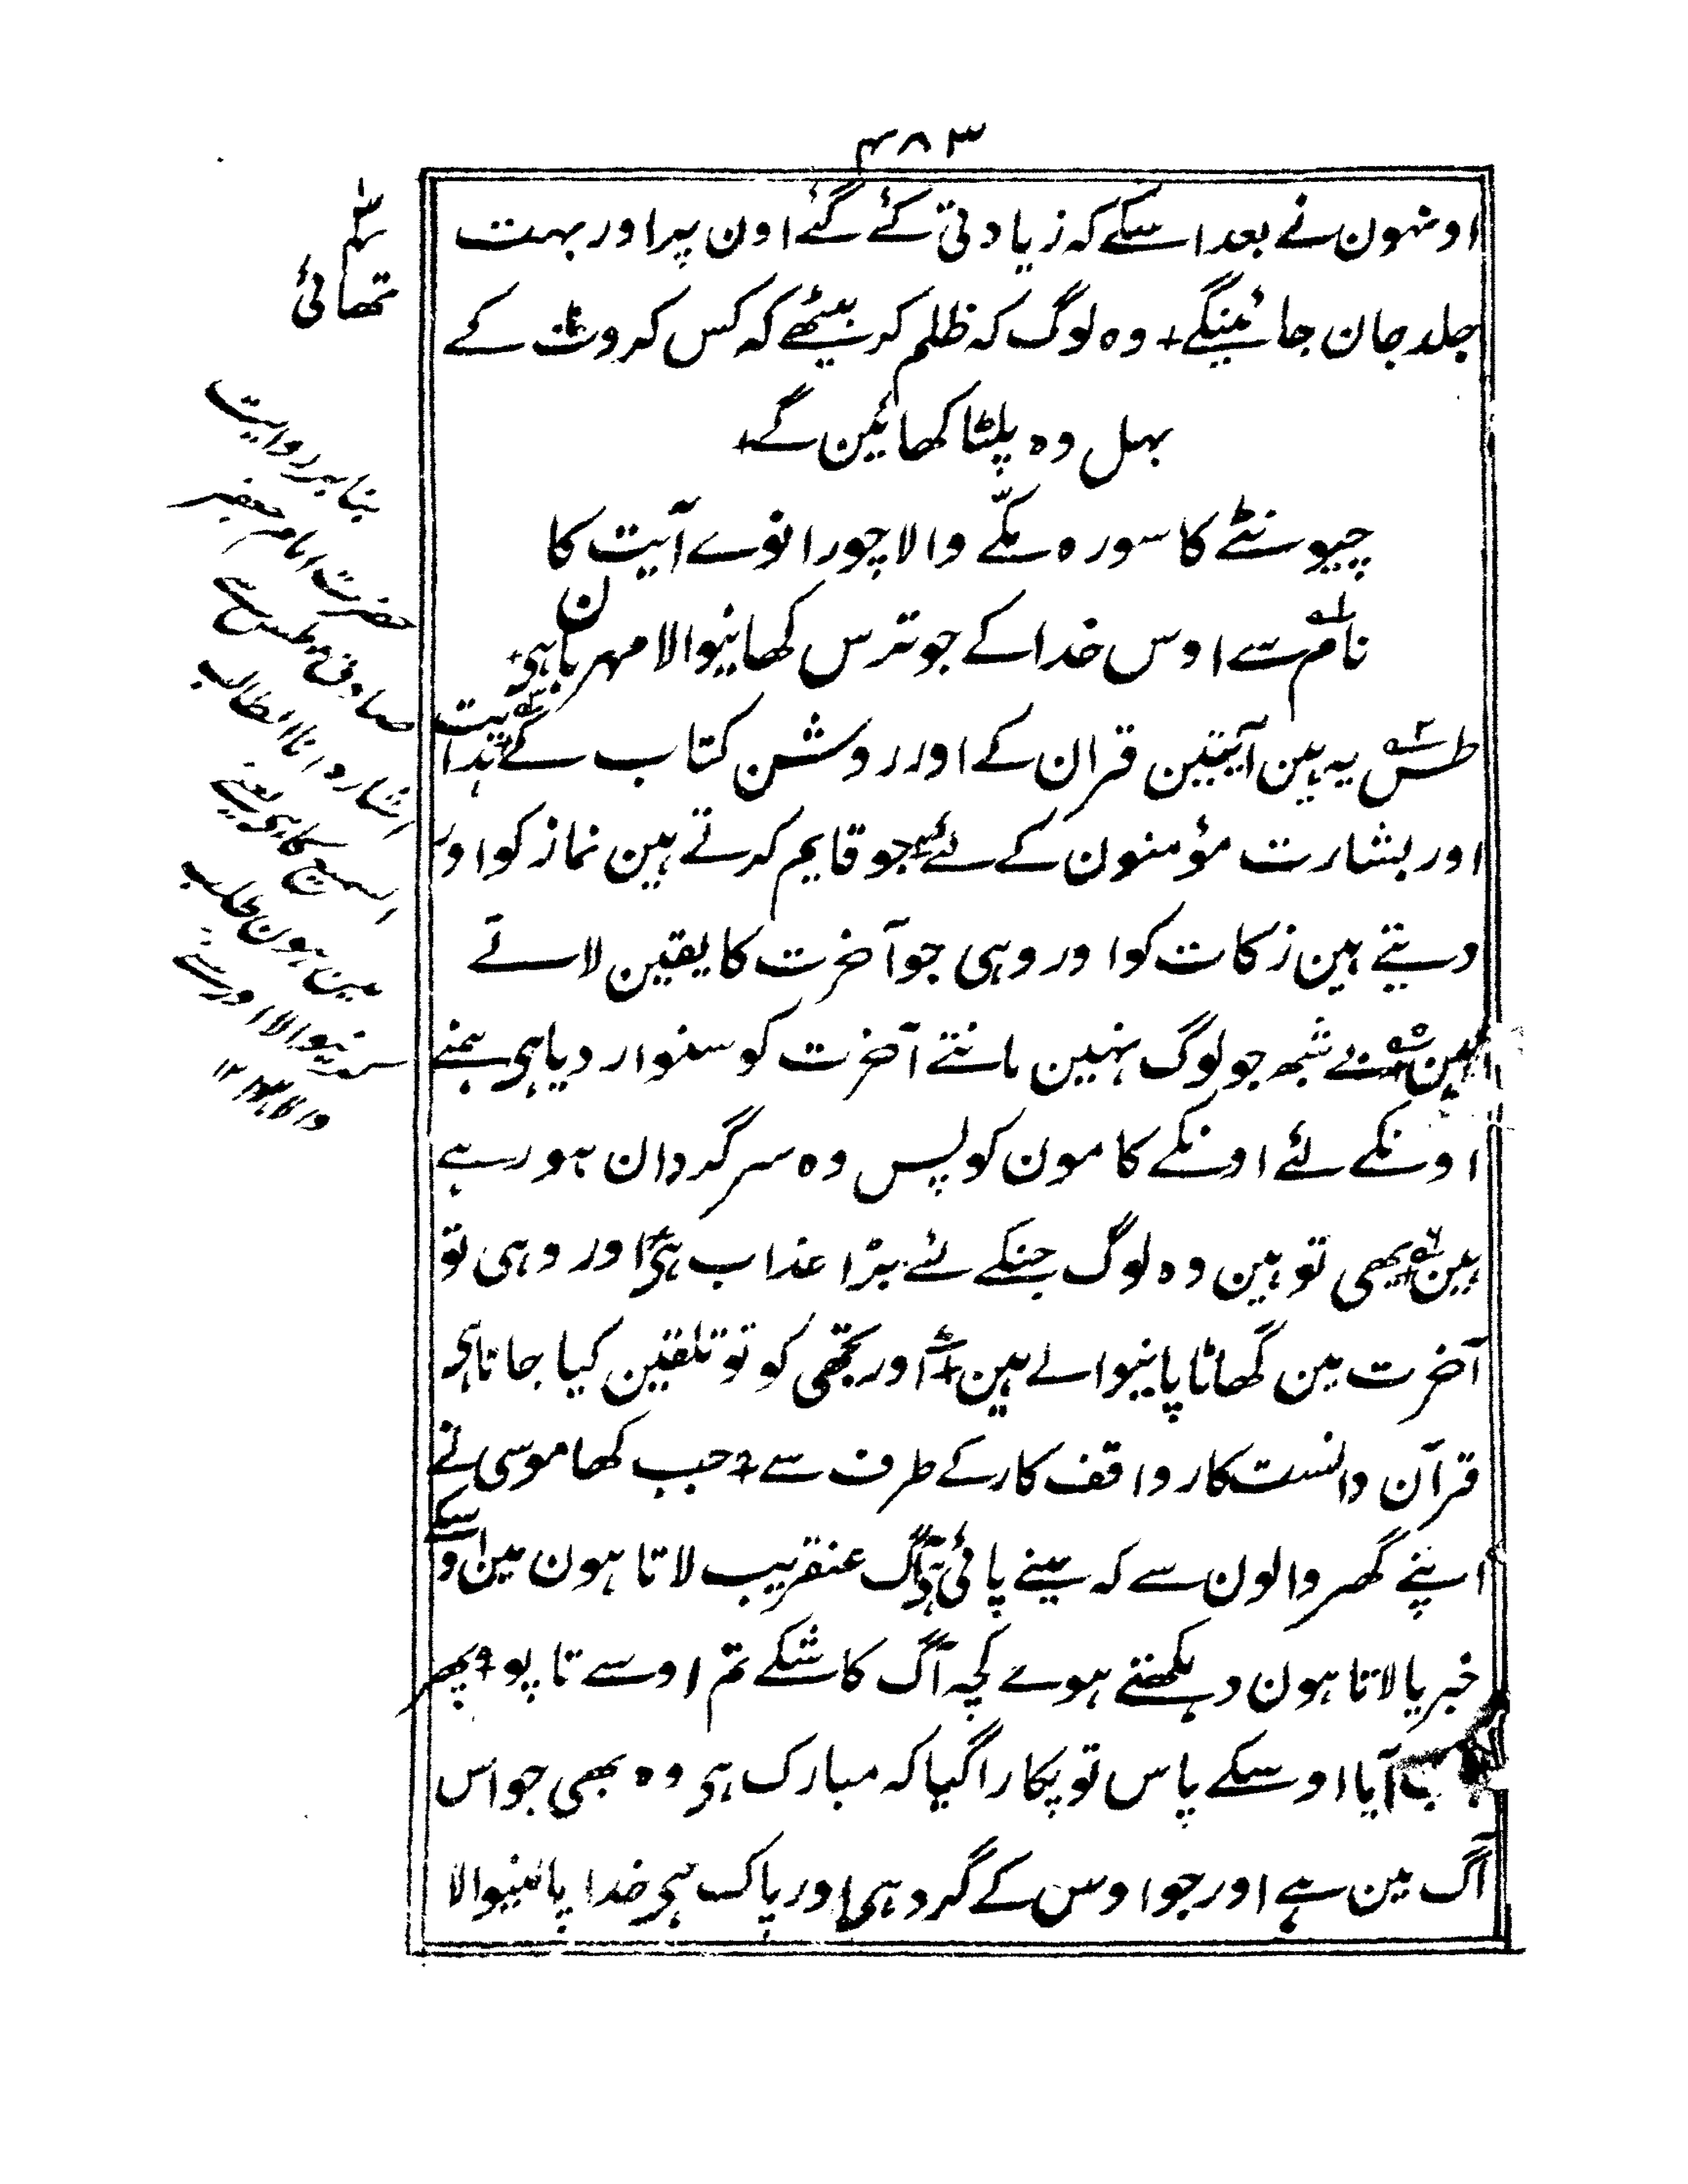 ۴۸۳
اونہون نے بعد اسکے کہ زیادتی کئے گئے اون پر اور بہت
جلد جان جائینگے + وہ لوگ کہ ظلم کر بیٹھے کہ کس کروٹ کے
بہل وہ پلٹا کھائین گے +
چیونٹے کا سورہ مکّے والا چورانوے آیت کا
نام سے اوس خدا کے جو ترس کھانیوالا مہربان ہی +
طس یہ ہین آیتین قران کے اور روشن کتاب کے + ہدایت
اور بشارت مؤمنون کے لئے + جو قایم کرتے ہین نماز کو اور
دیتے ہین زکات کو اور وہی جو آخرت کا یقین لاتے
ہین + بے شبہہ جو لوگ نہین مانتے آخرت کو سنوار دیا ہی ہمنے
اونکے لئے اونکے کامون کو پس وہ سرگردان ہو رہے
ہین + یھی تو ہین وہ لوگ جنکے لئے بڑا عذاب ہی اور وہی تو
آخرت مین گھاٹا پانیوالے ہین + اور تجھی کو تو تلقین کیا جاتا ہی
قرآن دانست کار واقف کار کے طرف سے + جب کھا موسی نے
اپنے گھر والون سے کہ مینے پائی ہی آگ عنقریب لاتا ہون مین اوسکے
خبر یا لاتا ہون دہکھتے ہوے کچہ آگ کاشکے تم اوسے تاپو + پھر
جب آیا اوسکے پاس تو پکارا گیا کہ مبارک ہی وہ بھی جو اس
آگ مین ہے اور جو اوس کے گرد ہی اور پاک ہی خدا پالنیوالا
تھائی
بنا بر روایت
حضرت امام جعفر
صادق ع طس سے
اشارہ انا الطالب
السمیع کا ہی یعنے
مین ہون طلب
سننیوالا اور
والا ۱۲